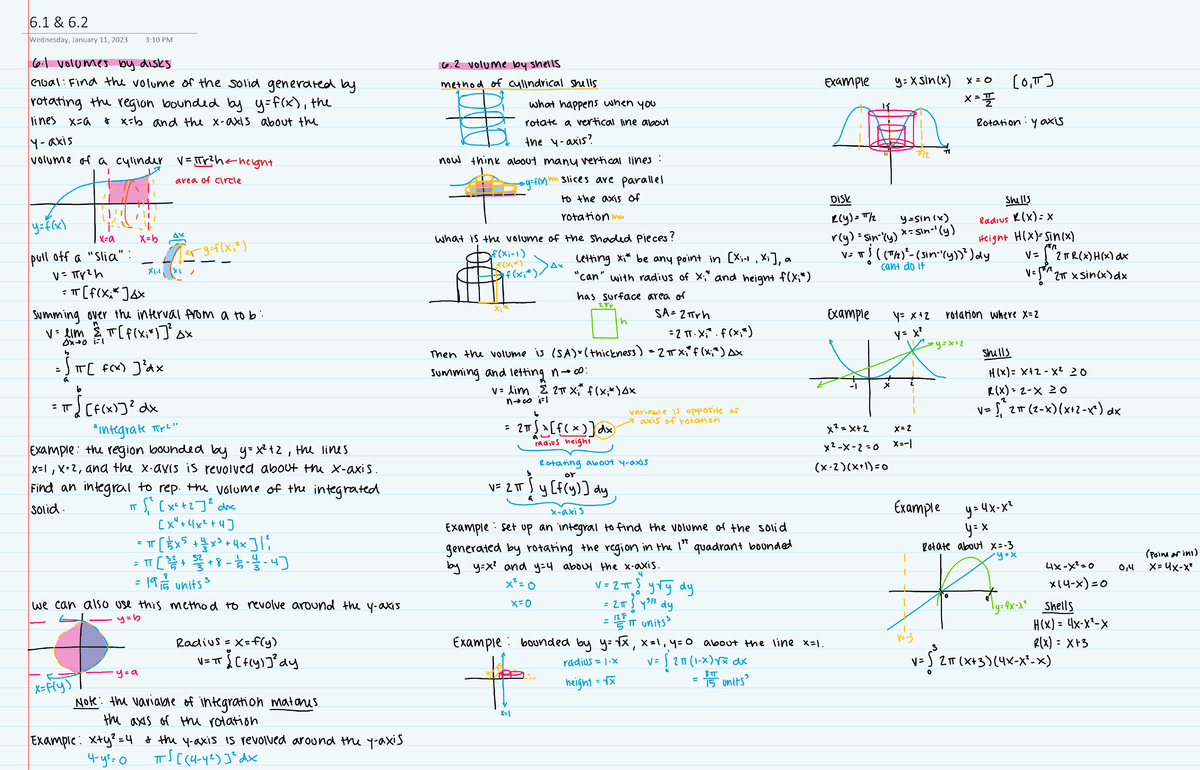 6.1 & 6.2
Wednesday, January 11, 2023 3:10 PM
6.1 volumes by disks
Goal: Find the volume of the solid generated by
rotating the region bounded by y=f(x), the
lines x=a & x=b and the x-axis about the
y-axis
volume of a cylinder V=πr²h←height
area of circle
y=f(x)
x=a x=b Δx
y=f(xᵢ*)
pull off a "slia":
xᵢ₋₁ xᵢ
V=πr²h
=π[f(xᵢ*]Δx
Summing over the interval from a to b:
V=lim Δx→0 Σ i=1 n π[f(xᵢ*)]² Δx
=∫ₐᵇ π[f(x)]²dx
=π∫ₐᵇ[f(x)]² dx
"integrate πr²"
Example: the region bounded by y=x²+2, the lines
x=1, x=2, and the x-axis is revolved about the x-axis.
Find an integral to rep. the volume of the integrated
solid.
π∫₁²[x²+2]² dx
[x⁴+4x²+4]
=π[1/5x⁵+4/3x³+4x]|₁²
=π[32/5+32/3+8-1/5-4/3-4]
=19 8/15 units³
we can also use this method to revolve around the y-axis
y=b
Radius = x=f(y)
V=π∫[f(y)]²dy
y=a
x=f(y)
Note: the variable of integration matches
the axis of the rotation
Example: x+y²=4 & the y-axis is revolved around the y-axis
4-y²=0 π∫[(4-y²)]²dx
6.2 volume by shells
method of cylindrical shells
what happens when you
rotate a vertical line about
the y-axis?
now think about many vertical lines:
y=f(x)
slices are parallel
to the axis of
rotation
what is the volume of the shaded pieces?
f(xᵢ-1)
f(xᵢ*)
f(xᵢ*)
Δx
xᵢ*
Letting xᵢ* be any point in [xᵢ₋₁, xᵢ], a
"can" with radius of xᵢ* and height f(xᵢ*)
has surface area of
2πr
h
SA=2πrh
=2π·xᵢ*·f(xᵢ*)
Then the volume is (SA)×(thickness)=2πxᵢ*f(xᵢ*)Δx
Summing and letting n→∞:
V=lim n→∞ Σ i=1 n 2πxᵢ*f(xᵢ*)Δx
=2π∫ₐᵇx[f(x)]dx
variable is opposite of
axis of rotation
radius height
Rotating about y-axis
or
V=2π∫ₐᵇy[f(y)]dy
x-axis
Example: Set up an integral to find the volume of the solid
generated by rotating the region in the 1ˢᵗ quadrant bounded
by y=x² and y=4 about the x-axis.
x²=0 V=2π∫₀⁴y√y dy
x=0 =2π∫₀⁴y³/² dy
=128/5 π units³
Example: bounded by y=√x, x=1, y=0 about the line x=1.
radius=1-x V=∫₀¹2π(1-x)√x dx
height=√x =8π/15 units³
x=1
Example y=xsin(x) x=0 [0,π]
x=π/2
Rotation: y axis
π/2
π
Disk
R(y)=π/2 y=sin(x)
r(y)=sin⁻¹(y) x=sin⁻¹(y)
V=π∫₀¹((π/2)²-(sin⁻¹(y))²)dy
cant do it
Shells
Radius R(x)=x
Height H(x)=sin(x)
V=∫₀^π/2 2πR(x)H(x)dx
V=∫₀^π/2 2πxsin(x)dx
Example y=x+2 rotation where x=2
y=x²
y=x+2
-1 x 2
Shells
H(x)=x+2-x²≥0
R(x)=2-x≥0
V=∫₋₁²2π(2-x)(x+2-x²)dx
x²=x+2 x=2
x²-x-2=0 x=-1
(x-2)(x+1)=0
Example y=4x-x²
y=x
Rotate about x=-3
y=x
(point of int)
4x-x²=0 0,4 x=4x-x²
x(4-x)=0
0
4
y=4x-x²
x=-3
Shells
H(x)=4x-x²-x
R(x)=x+3
V=∫₀³2π(x+3)(4x-x²-x)